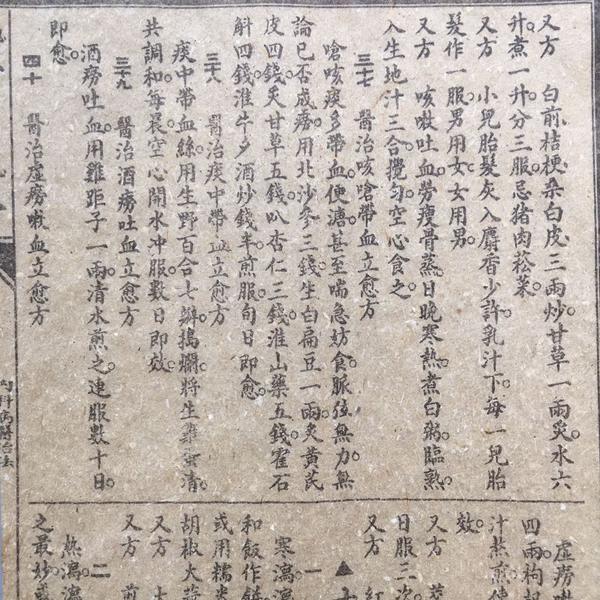 又方 白前桔梗桑白皮三兩炒甘草一兩炙。水六
升。煮一升分三服。忌豬肉菘菜。
又方 小兒胎髮灰入麝香少許乳汁下。每一兒胎
髮作一服。男用女。女用男。
又方 咳嗽吐血勞瘦骨蒸。日晚寒熱。煮白粥臨熟。
入生地汁三合攪勻。空心食之。
三七 醫治咳嗆帶血立愈方
嗆咳痰多帶血。便溏甚至喘急妨食。脈弦無力。無
論已否成癆。用北沙參三錢。生白扁豆一兩。炙黃芪
皮四錢。炙甘草五錢。叭杏仁三錢。淮山藥五錢。霍石
斛四錢。淮牛夕酒炒錢半。煎服旬日即愈。
三八 醫治痰中帶血立愈方
痰中帶血絲。用生野百合七瓣搗爛。將生雞蛋清。
共調和。每晨空心開水冲服。數日即效。
三九 醫治酒癆吐血立愈方
酒癆吐血。用雞距子一兩。清水煎之。連服數十日。
即愈。
四十 醫治虛癆嗽血立愈方
內科病醫治法
虛癆嗽
四兩枸杞
汁熬煎
效。
又方
日服三次
又方 紅
▲
一
寒瀉
和飯作餅
或用糯米
胡椒大蒜
又方
又方 煎
二
熱瀉
之最妙